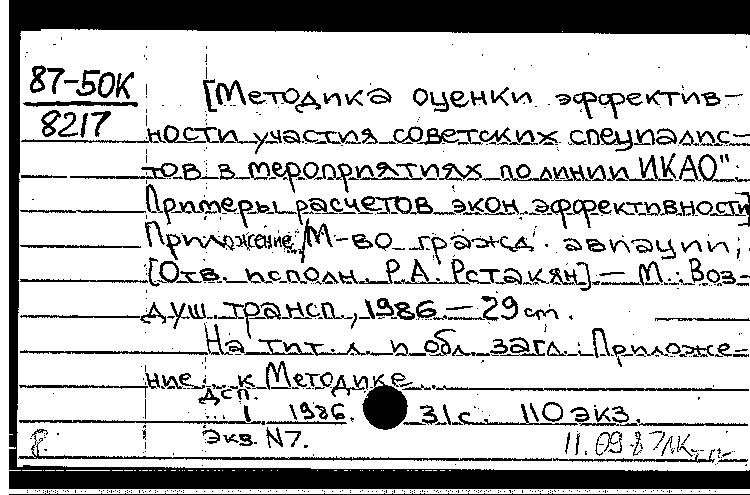 87-50К
8217
[Методика оценки эффектив-
ности участия советских специалис-
тов в мероприятиях по линии ИКАО".
Примеры расчетов экон. эффективности]
Приложение / М-во гражд. авиации;
[Отв. исполн. Р.А. Рстакян] — М.: Воз-
душ. трансп., 1986 — 29 cm.
На тит. л. и обл. загл.: Приложе-
ние к Методике...
дсп.
1986. 31 с. 110 экз.
Экз. N7.
8.
11.09.87